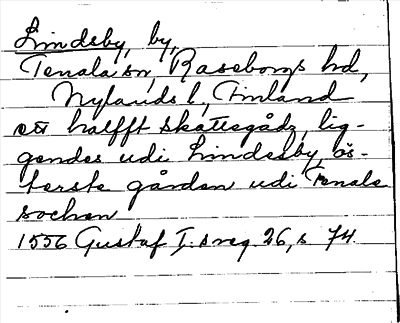 Lindsby, by,
Tenala sn, Raseborgs hd,
Nylands l, Finland
ett halfft skattegådz, lig-
gendes udi Lindesby, ös-
terste gården udi Tenale
sochen
1556 Gustaf I:s reg. 26, s. 74.